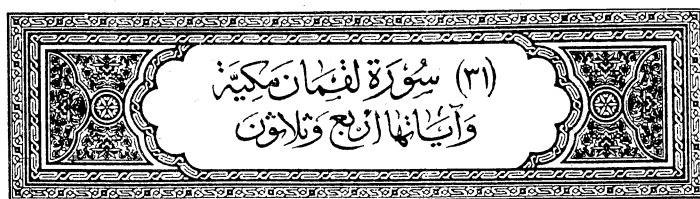 (٣١) سُورَة لقمَان مَكِيَّة
وَآيَاتها أربع وَثلاثون